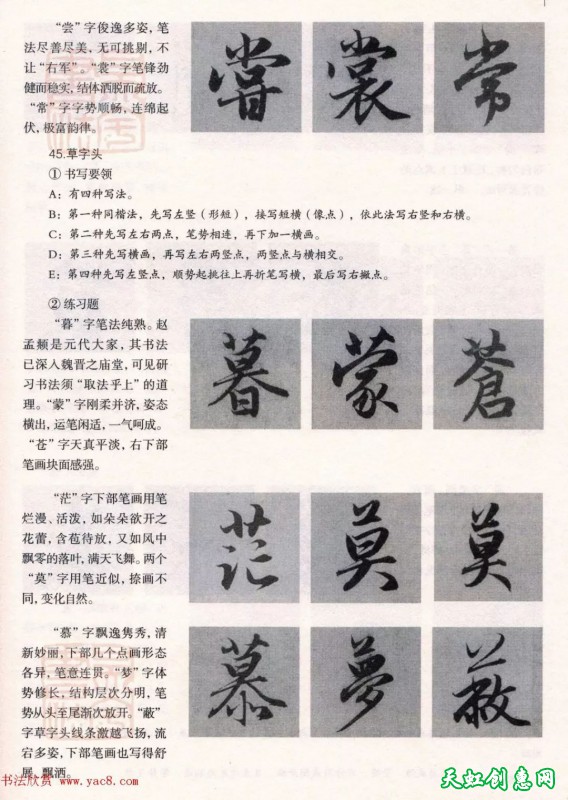 “尝”字俊逸多姿，笔
法尽善尽美，无可挑剔，不
让“右军”。“裳”字笔锋劲
健而稳实，结体洒脱而疏放。
“常”字字势顺畅、连绵起
伏，极富韵律。
嘗 裳 常
45.草字头
① 书写要领
A：有四种写法。
B：第一种同楷法，先写左竖（形短），接写短横（像点），依此法写右竖和右横。
C：第二种先写左右两点，笔势相连，再下加一横画。
D：第三种先写横画，再写左右两竖点，两竖点与横相交。
E：第四种先写左竖点，顺势起挑往上再折笔写横，最后写右撇点。
② 练习题
“暮”字笔法纯熟。赵
孟頫是元代大家，其书法
已深入魏晋之庙堂，可见研
习书法须“取法乎上”的道
理。“蒙”字刚柔并济，姿态
横出，运笔闲适，一气呵成。
“苍”字天真平淡，右下部
笔画块面感强。
暮 蒙 蒼
“茫”字下部笔画用笔
烂漫、活泼，如朵朵欲开之
花蕾，含苞待放，又如风中
飘零的落叶，满天飞舞。两个
“莫”字用笔近似，捺画不
同，变化自然。
茫 莫 莫
“慕”字飘逸隽秀，清
新妙丽，下部几个点画形态
各异，笔意连贯。“梦”字体
势修长，结构层次分明，笔
势从头至尾渐次放开。“蔽”
字草字头线条激越飞扬，流
宕多姿，下部笔画也写得舒
展、飘洒。
慕 夢 蔽
书法欣赏 www.yac8.com
天虹创惠网